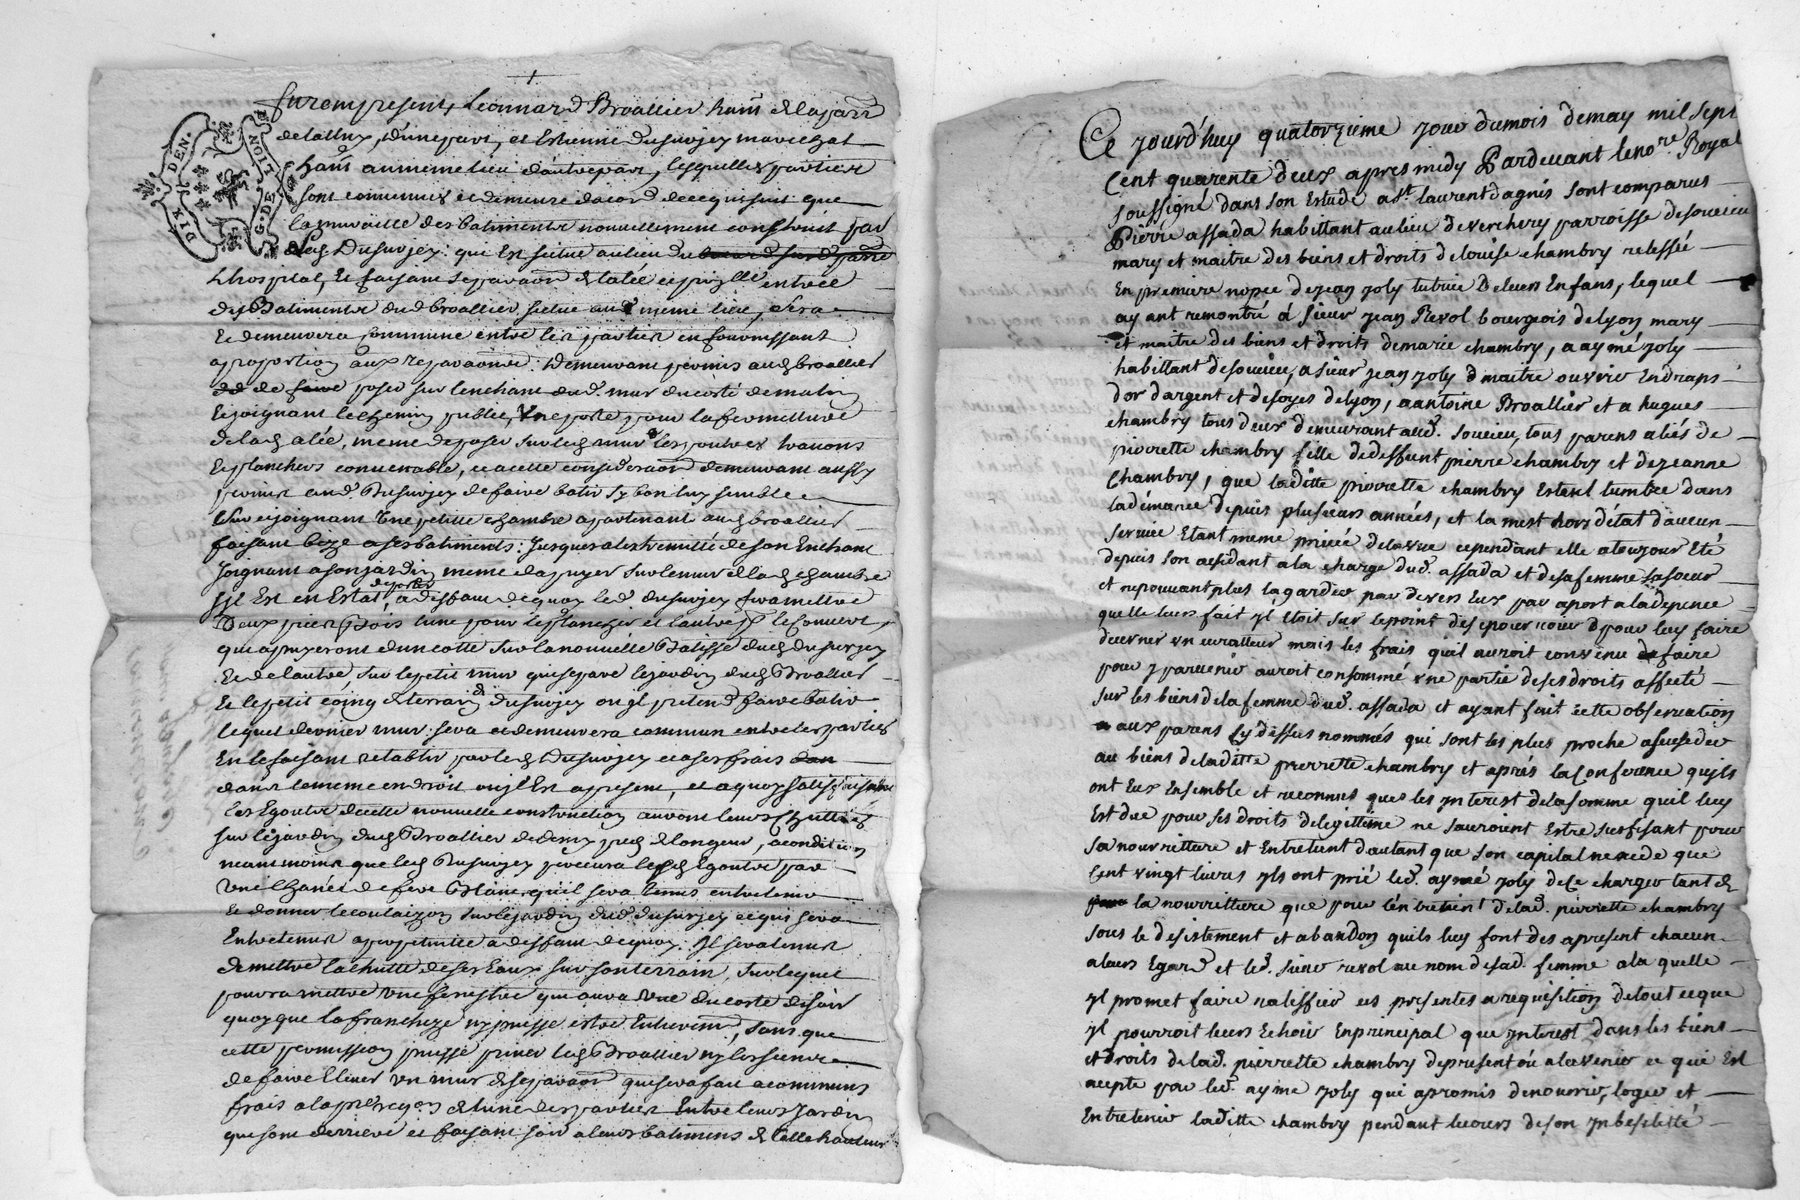 furent presents, Leonnard Broallier hant de la parr
de lattux, d'une part, et Estienne Dusurjey marechal
hant au meme lieu d'autre part, lesquelles parties
sont convenues et demeuré dacord de ce qui suit que
la muraille des batiments nouvellement construit par
led Dusurjey: qui est scitue au lieu de
Lhospital, et faisant separaon de lalée et entrée
des Batiments dud broallier scitue aud meme lieu, sera
et demeurera commune entre les parties en fournissant
a proportion aux reparaons: Demeurant permis aud broallier
de poser sur lenchant dud. mur du costé de matin
et joignant le chemin public, une porte pour la fermetture
de lad alée, meme de poser sur led mur les poutres travons
et planchers convenable, et a cette consideraon demeurant aussy
permis aud Dusurjey de faire batir sy bon luy semble
sur et joignant une petitte chambre apartenant aud broallier
faisant à ses batiments: jusques a lextremitté de son Enchant
joignant a son jardin meme dapuyer sur le mur de lad chambre
syl Est en Estat, a deffaut de quoy led Dusurjey fera mettre
Deux pieds bois lune pour le plancher et lautre pr le couvert,
qui apuyeront d'un cotté sur la nouvelle Batisse dud dusurjey
Et de lautre, sur le petit mur qui separe le jardin dud Broallier
Et le petit coing de terrain de Dusurjey ou yl pretend faire batir
lequel dernier mur sera et demeurera commun entre les parties
En le faisant retablir par led Dusurjey et a ses frais
dans le meme endroit ou yl Est apresent, et a quoy satisfaisant
les Egoutes de cette nouvelle construction auront leurs chuttes
sur le jardin dud Broallier de demy pied de longeur, a condition
neanmoins que led Dusurjey les Egoutes par
une chanée de fere Blanc, qu'il sera tenus entretenir
Et donner le coulaizon sur le jardin dud. dusurjey ce quis sera
Entretenus a perpetuitté a deffaut de quoy. Yl sera tenus
de mettre la chutte de ses Eaux sur son terrain, sur lequel
pourra mettre une fenestre qui aura vue du coste de soir
quoy que la francheze ny puisse estre, sans que
cette permission puisse priver led Broallier ny les siens
de faire Elever un mur de separaon que sera fait a communs
frais a la de lune des parties Entre leurs Jardin
qui sont derriere et faisant soir a leurs batimens de telle hauteur
DIX DEN.
G. DE LION
Ce jourd'huy quatorzieme jour du mois de may mil sept
Cent quarente deux apres midy Pardevant le nore Royal
soussigné dans son Estude a st. laurent dagnis sont comparus
Pierre assada habittant au lieu de verchery parroisse de soucieu
mary et maitre des biens et droits de louise chambry relessée
En premiere nopce de jean joly tutrice De leurs Enfans, lequel
ay ant remontré à sieur jean Revol bourgeois de lyon mary
et maitre des biens et droits de marie chambry, a aymé joly
habittant de soucieu, a sieur jean joly d maitre ouvrier En draps
d'or d'argent et de soyes de lyon, a antoine Broallier et a hugues
chambry tous deux demeurant aud. soucieu, tous parens aliés de
pierrette chambry fille de deffunt pierre chambry et de jeanne
Chambry, que laditte pierrette chambry Estent tumbée dans
la démance depuis plusieurs années, et la mest hors détat d'aucun
service Etant meme privée de la vue cependant elle a toujour Eté
depuis son accidant a la charge dud. assada et de sa femme sa soeur
et ne pouvant plus la garder par devers Eux par aport a la depence
quelle leurs fait yl Etoit sur le point de se pourvoir pour luy faire
decerner un curatteur mais les frais qu'il auroit convenu de faire
pour y parvenir auroit consommé une partie de ses droits affecté
sur les biens de la femme dud. assada et ayant fait cette observation
aux parens cy dessus nommés qui sont les plus proche a succeder
au biens de laditte pierrette chambry et aprés la Conference qu'ils
ont Eux Ensemble et reconnus que les ynterest de la somme qu'il luy
Est due pour ses droits de legittime ne sauroient Estre suffisant pour
sa nourritture et Entretient d'autant que son capital nexcede que
Cent vingt livres yls ont prié led. aymé joly de se charger tant de
la nourritture que pour lentretient de lad. pierrette chambry
sous le desistement et abandon quils luy font des apresent chacun
a leurs Egard et led. sieur revol au nom de sad. femme a la quelle
yl promet faire ratiffier ces presentes a requisition de tout ce que
yl pourroit leurs Echoir En principal que ynterest dans les biens
et droits de lad. pierrette chambry de present ou a lavenir ce qui Est
acepté par led. aymé joly qui a promis de nourrir, loger et
Entretenir laditte chambry pendant le cours de son ynbesilitté